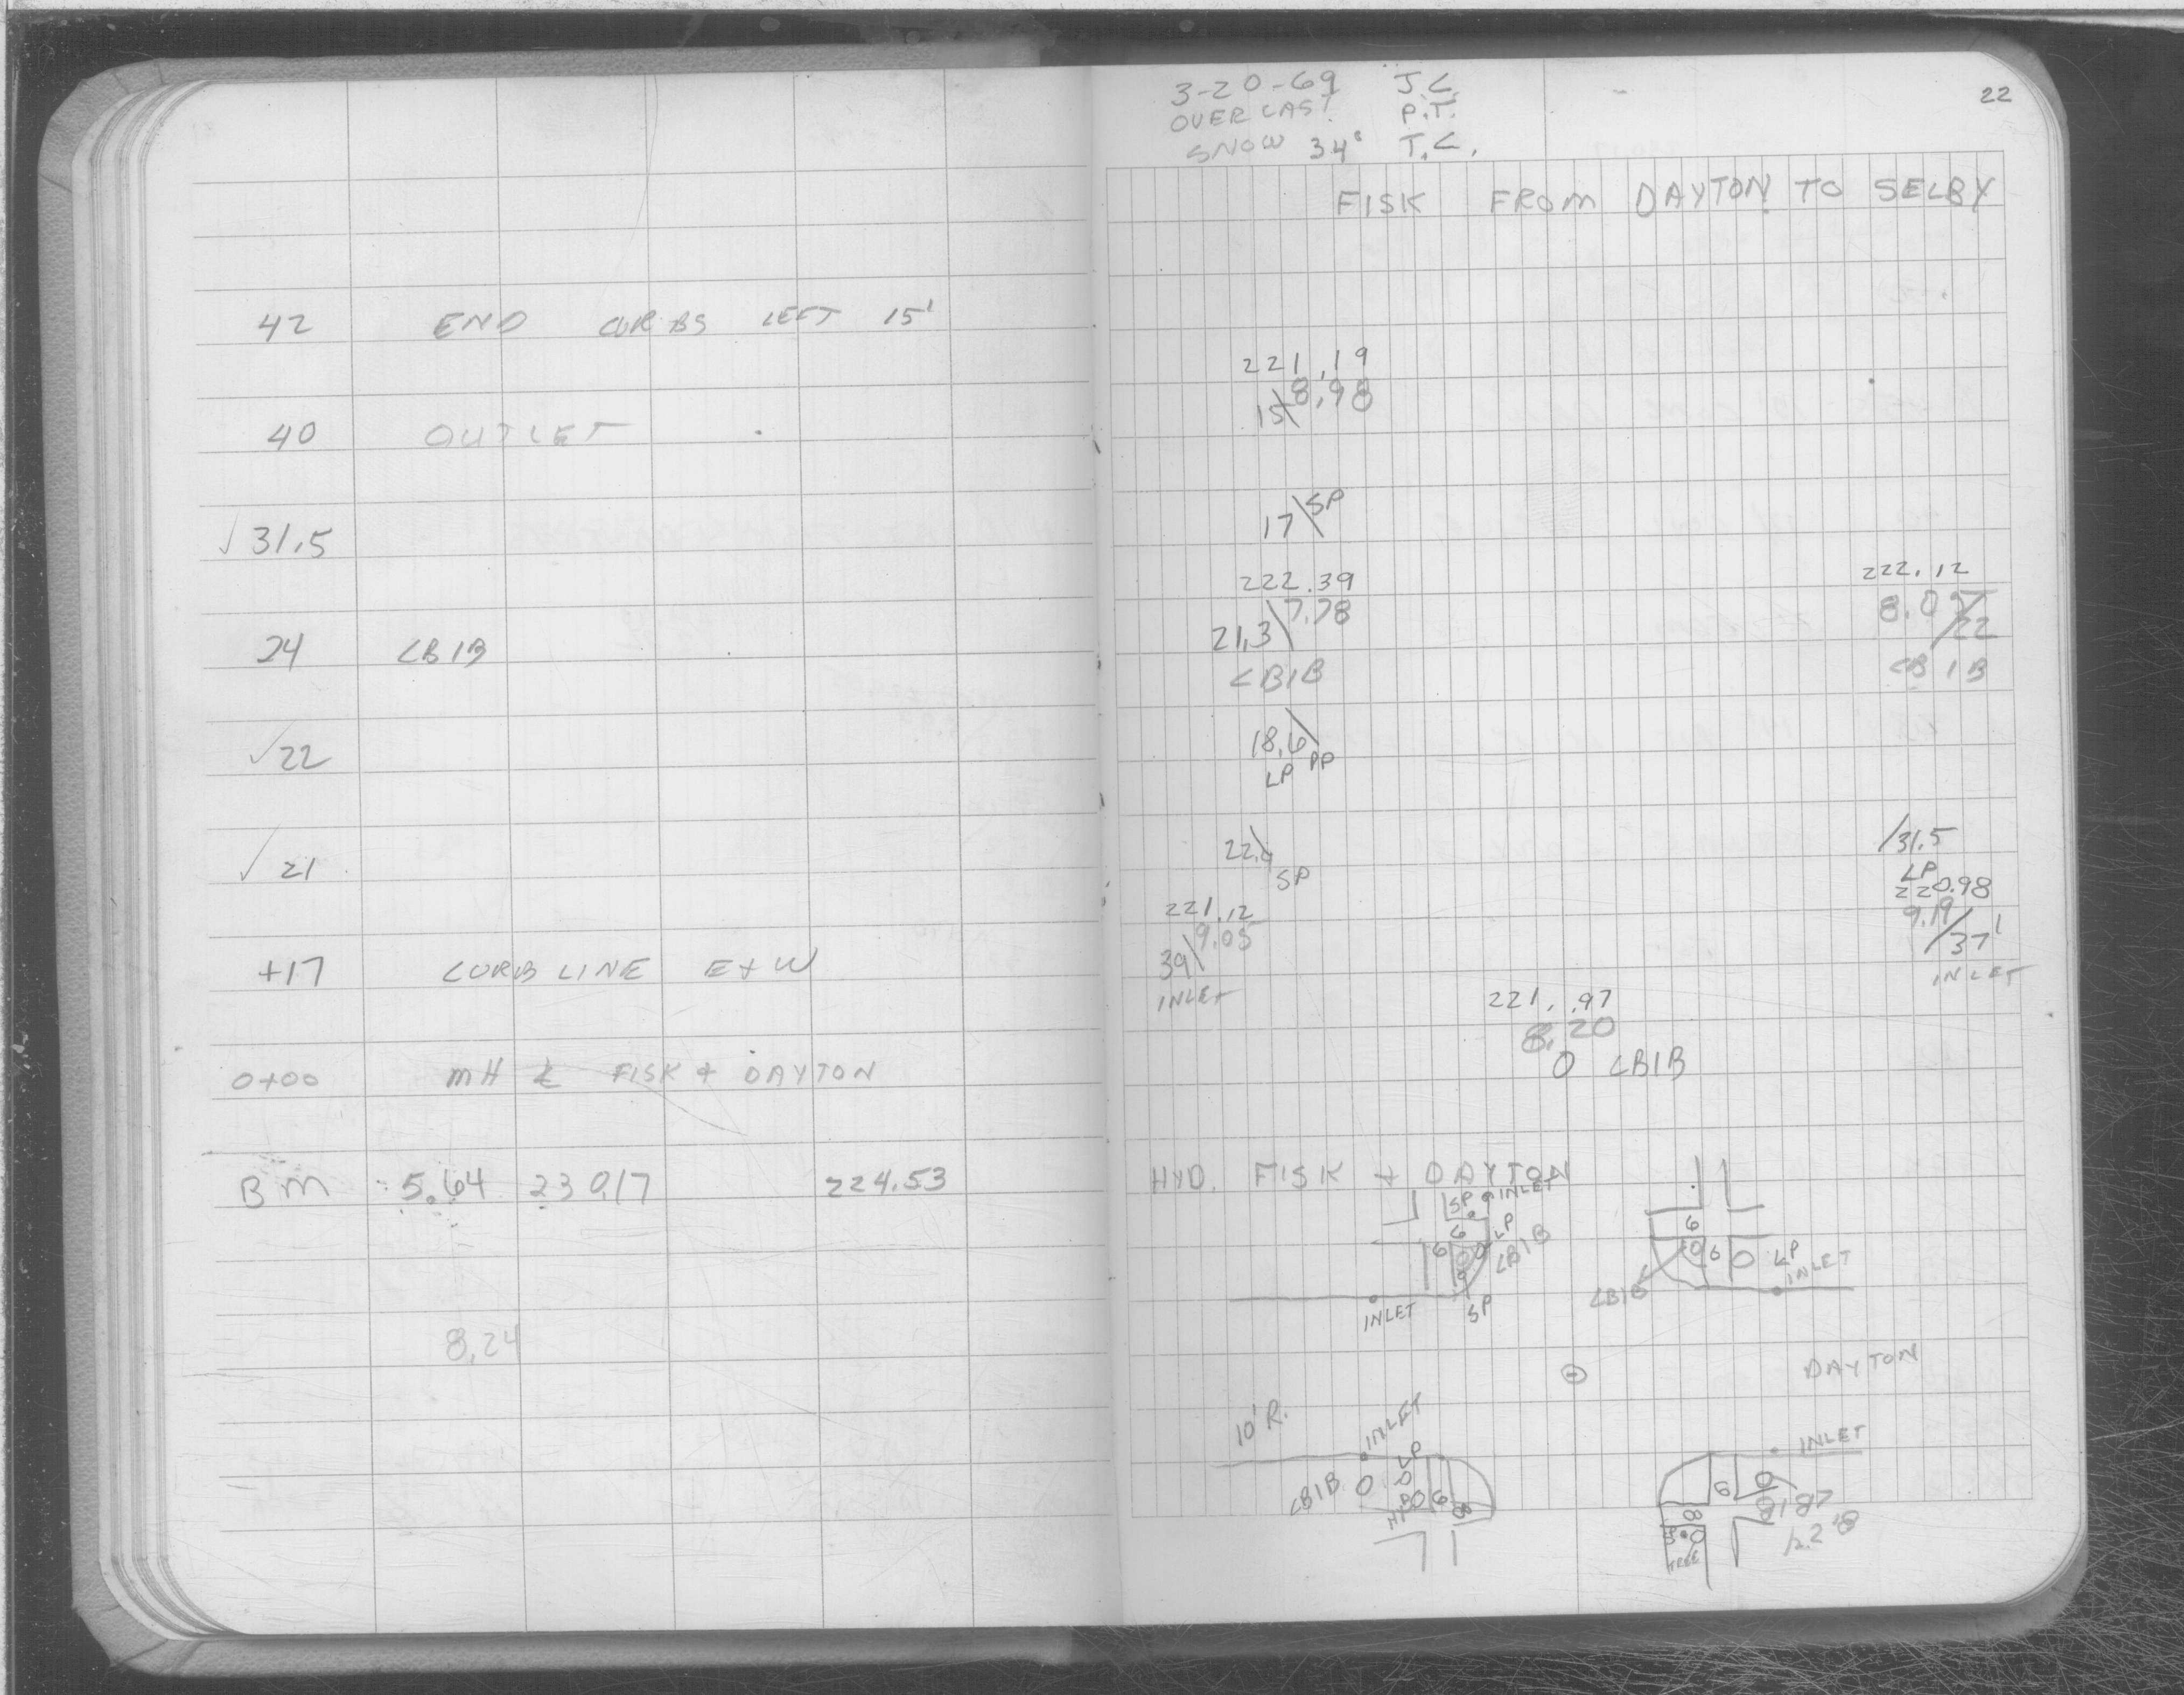 42 END CURBS LEFT 15'
40 OUTLET
√ 31.5
24 CB1B
√ 22
√ 21
+17 CURB LINE E+W
0+00 MH ℄ FISK + DAYTON
BM 5.64 230.17 224.53
8.24
3-20-69 J.C.
OVERCAST P.T.
SNOW 34° T.C.
22
FISK FROM DAYTON TO SELBY
221.19
15\8.98
17\SP
222.39
21.3\7.78
CB1B
222.12
8.05/22
CB1B
18.6\
LP PP
22.9\
SP
/31.5
LP
221.12
39\9.05
INLET
220.98
9.19/37'
INLET
221.97
8.20
0 CB1B
HYD. FISK + DAYTON
SP INLET
6
LP
6
CB1B
INLET
SP
6
6
LP
INLET
CB1B
DAYTON
10'R.
INLET
CB1B
LP
HYD
6
8
INLET
6
CB1B
8
TREE